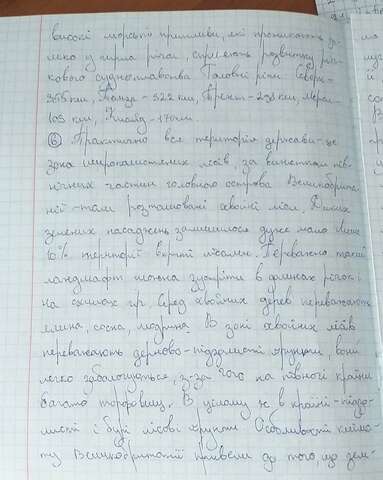 високі морські припливи, які проникають да-
леко у гирла річок, сприяють розвитку річ-
кового судноплавства. Головні ріки: Северн-
355 км, Темза - 322 км, Трент - 298 км, Мерсі-
109 км, Клайд - 170 км.
⑥ Практично вся територія держави - це
зона широколистяних лісів, за винятком пів-
нічних частин головного острова Великобрита-
нії - там розташовані хвойні ліси. Диких
зелених насаджень залишилося дуже мало. Лише
10% території вкриті лісами. Переважно такий
ландшафт можна зустріти в долинах річок і
на схилах гір. Серед хвойних дерев переважають
ялина, сосна, модрина. В зоні хвойних лісів
переважають дерново-підзолисті ґрунти, вони
легко заболочуються, з-за чого на півночі країни
багато торфовищ. В цілому ж в країні - підзо-
листі і бурі лісові ґрунти. Особливості кліма-
ту Великобританії привели до того, що зем-